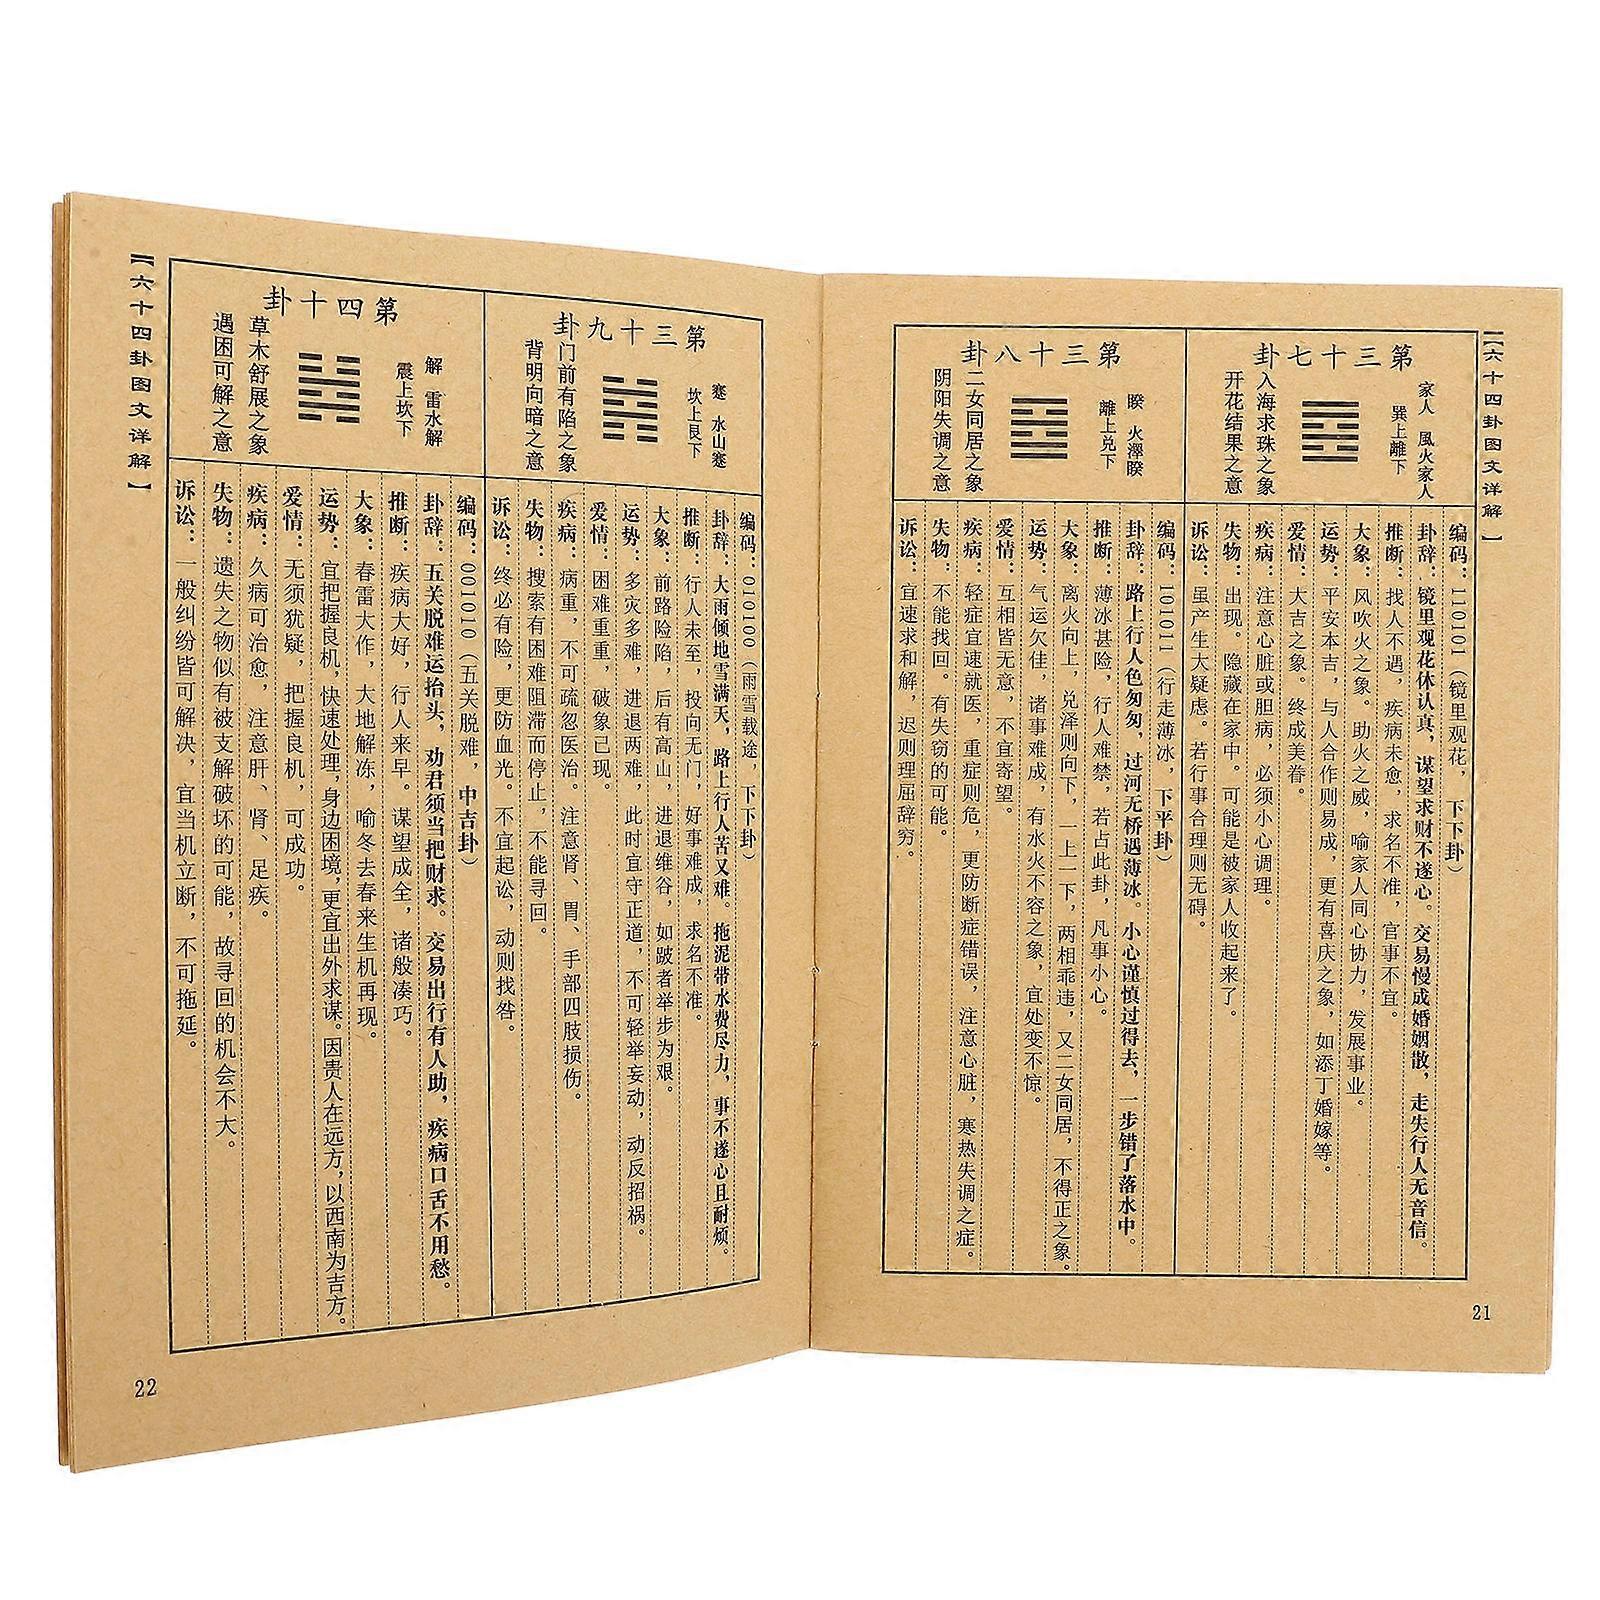 【六十四卦图文详解】
第三十七卦
家人 風火家人
巽上離下
入海求珠之象
开花结果之意
编码：110101（镜里观花，下下卦）
卦辞：镜里观花休认真，谋望求财不遂心。交易慢成婚姻散，走失行人无音信。
推断：找人不遇，疾病未愈，求名不准，官事不宜。
大象：风吹火之象。助火之威，喻家人同心协力，发展事业。
运势：平安本吉，与人合作则易成，更有喜庆之象，如添丁婚嫁等。
爱情：大吉之象。终成美眷。
疾病：注意心脏或胆病，必须小心调理。
失物：出现。隐藏在家中。可能是被家人收起来了。
诉讼：虽产生大疑虑。若行事合理则无碍。
第三十八卦
睽 火澤睽
離上兑下
二女同居之象
阴阳失调之意
编码：101011（行走薄冰，下平卦）
卦辞：路上行人色匆匆，过河无桥遇薄冰。小心谨慎过得去，一步错了落水中。
推断：薄冰甚险，行人难禁，若占此卦，凡事小心。
大象：离火向上，兑泽则向下，一上一下，两相乖违，又二女同居，不得正之象。
运势：气运欠佳，诸事难成，有水火不容之象，宜处变不惊。
爱情：互相皆无意，不宜寄望。
疾病：轻症宜速就医，重症则危，更防断症错误，注意心脏，寒热失调之症。
失物：不能找回。有失窃的可能。
诉讼：宜速求和解，迟则理屈辞穷。
21
第三十九卦
蹇 水山蹇
坎上艮下
门前有陷之象
背明向暗之意
编码：010100（雨雪载途，下下卦）
卦辞：大雨倾地雪满天，路上行人苦又难。拖泥带水费尽力，事不遂心且耐烦。
推断：行人未至，投向无门，好事难成，求名不准。
大象：前路险陷，后有高山，进退维谷，如跛者举步为艰。
运势：多灾多难，进退两难，此时宜守正道，不可轻举妄动，动反招祸。
爱情：困难重重，破象已现。
疾病：病重，不可疏忽医治。注意肾、胃、手部四肢损伤。
失物：搜索有困难阻滞而停止，不能寻回。
诉讼：终必有险，更防血光。不宜起讼，动则找咎。
第四十卦
解 雷水解
震上坎下
草木舒展之象
遇困可解之意
编码：001010（五关脱难，中吉卦）
卦辞：五关脱难运抬头，劝君须当把财求。交易出行有人助，疾病口舌不用愁。
推断：疾病大好，行人来早。谋望成全，诸般凑巧。
大象：春雷大作，大地解冻，喻冬去春来生机再现。
运势：宜把握良机，快速处理，身边困境，更宜出外求谋。因贵人在远方，以西南为吉方。
爱情：无须犹疑，把握良机，可成功。
疾病：久病可治愈，注意肝、肾、足疾。
失物：遗失之物似有被支解破坏的可能，故寻回的机会不大。
诉讼：一般纠纷皆可解决，宜当机立断，不可拖延。
【六十四卦图文详解】
22